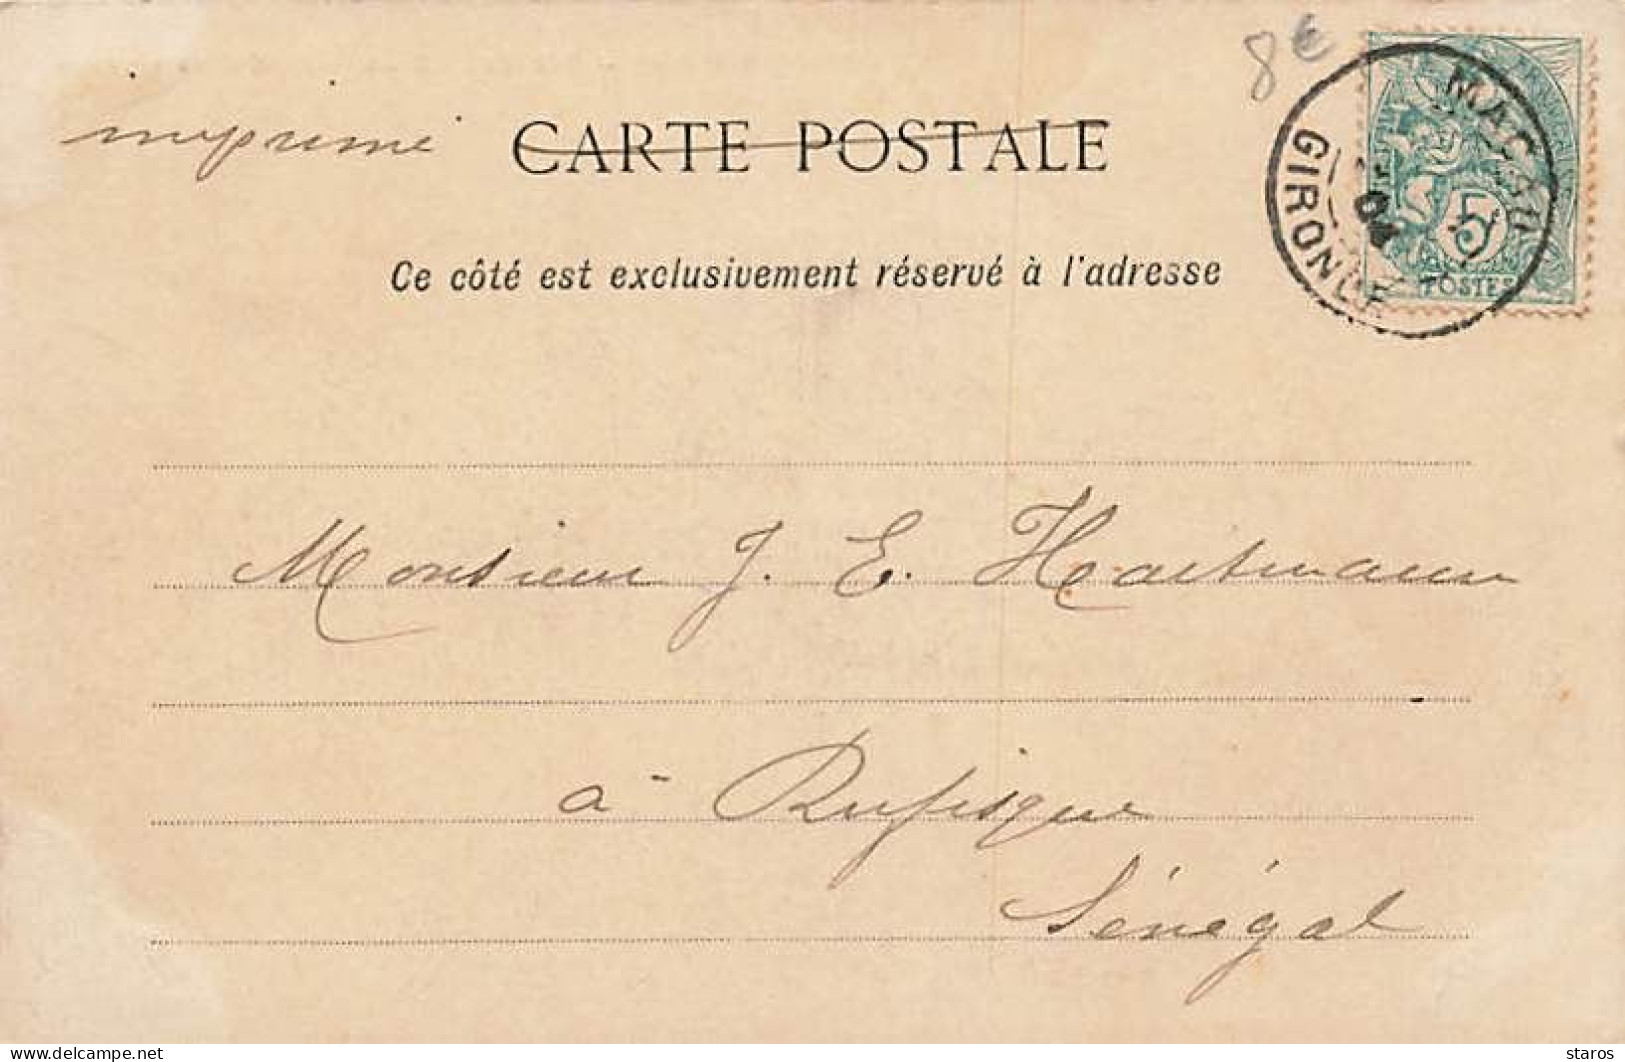 8 €
imprimé CARTE POSTALE
GIRONDE
04
5
POSTES
Ce côté est exclusivement réservé à l'adresse
Monsieur J. E. Hartmann
à Rufisque
Sénégal
delcampe.net
staros